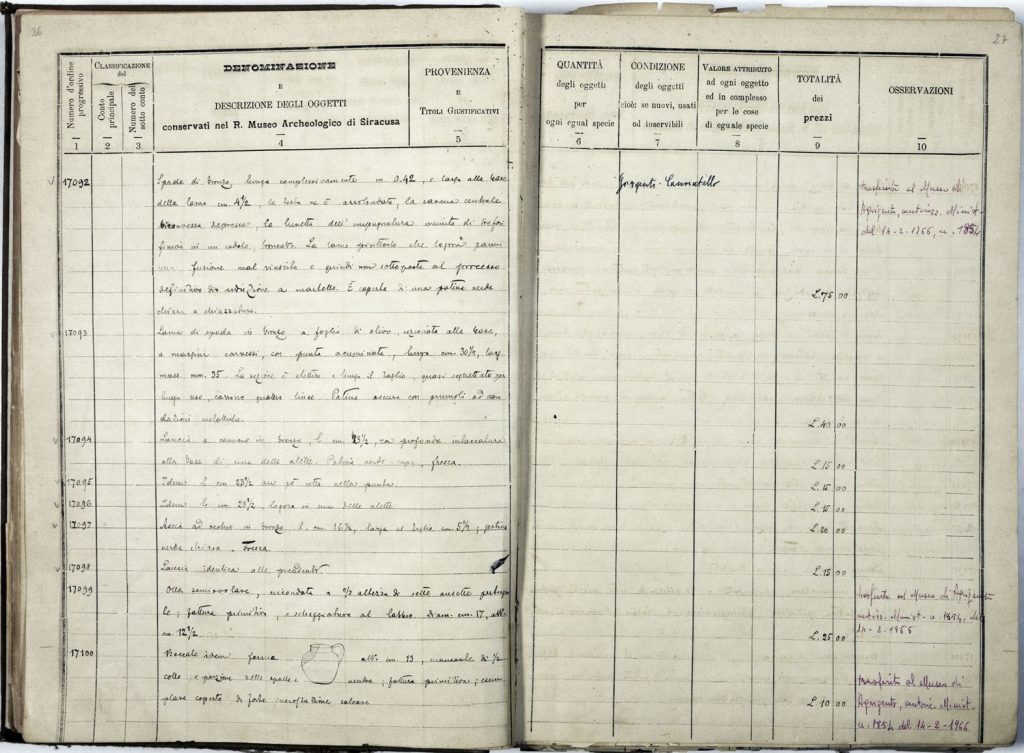 26
Numero d'ordine progressivo
CLASSIFICAZIONE
del
Conto principale
Numero del sotto conto
DENOMINAZIONE
E
DESCRIZIONE DEGLI OGGETTI
conservati nel R. Museo Archeologico di Siracusa
PROVENIENZA
E
TITOLI GIUSTIFICATIVI
1 2 3 4 5
17092 Spada di bronzo lunga complessivamente m. 0.42, e larga alla base
della lama cm. 4 1/2, la testa ne è arrotondata, la carena centrale
depressa, la lunetta dell'impugnatura munita di tre fori
in un codolo troncato. La lama piuttosto che
fusione mal riuscita e quindi non sottoposta al processo
definitivo di a martello. È coperta di una patina verde
chiara a chiazzature.
17093 Lama di spada in bronzo a foglia di olivo, alla base,
a margini, con punta acuminata, lunga cm. 30 1/4, larg.
mass. mm. 35. La sezione è e lungo il taglio, quasi per
lungo uso, corrono quattro linee. Patina oscura con grumoli ad
17094 Lancia a cannone in bronzo, l. cm. 23 1/2, con profonda intaccatura
alla base di una delle alette. Patina verde-cupa, fresca.
17095 Idem l. cm. 23 1/2 un po' rotta nella punta.
17096 Idem l. cm. 23 1/2, logora in una delle alette
17097 Ascia ad occhio in bronzo l. cm. 16 1/2, larga al taglio cm. 5 3/4; patina
verde chiara. Fresca.
17098 Lancia identica alle precedenti.
17099 Olla semiovolare, circondata a 2/3 altezza di sette ansette
; fattura primitiva, e scheggiature al labbro. Diam. cm. 17, alt.
cm. 12 1/2.
17100 Boccale idem forma alt. cm. 13, mancante di 1/2
collo e porzione delle spalle e ventre; fattura primitiva;
coperto di forte incrostazione calcare
27
QUANTITÀ
degli oggetti
per
ogni egual specie
CONDIZIONE
degli oggetti
cioè: se nuovi, usati
od inservibili
VALORE ATTRIBUITO
ad ogni oggetto
ed in complesso
per le cose
di eguale specie
TOTALITÀ
dei
prezzi
OSSERVAZIONI
6 7 8 9 10
Girgenti - Cannatello
trasferito al Museo di
Agrigento, autorizz. Minist.
del 14-2-1966, n. 1854
L. 75 00
L. 40 00
L. 15 00
L. 15 00
L. 15 00
L. 20 00
L. 15 00
trasferito al Museo di Agrigento
autoriz. Minist. n. 1854, del
14-2-1966
L. 25 00
trasferito al Museo di
Agrigento, autoriz. Minist.
n. 1854 del 14-2-1966
L. 10 00